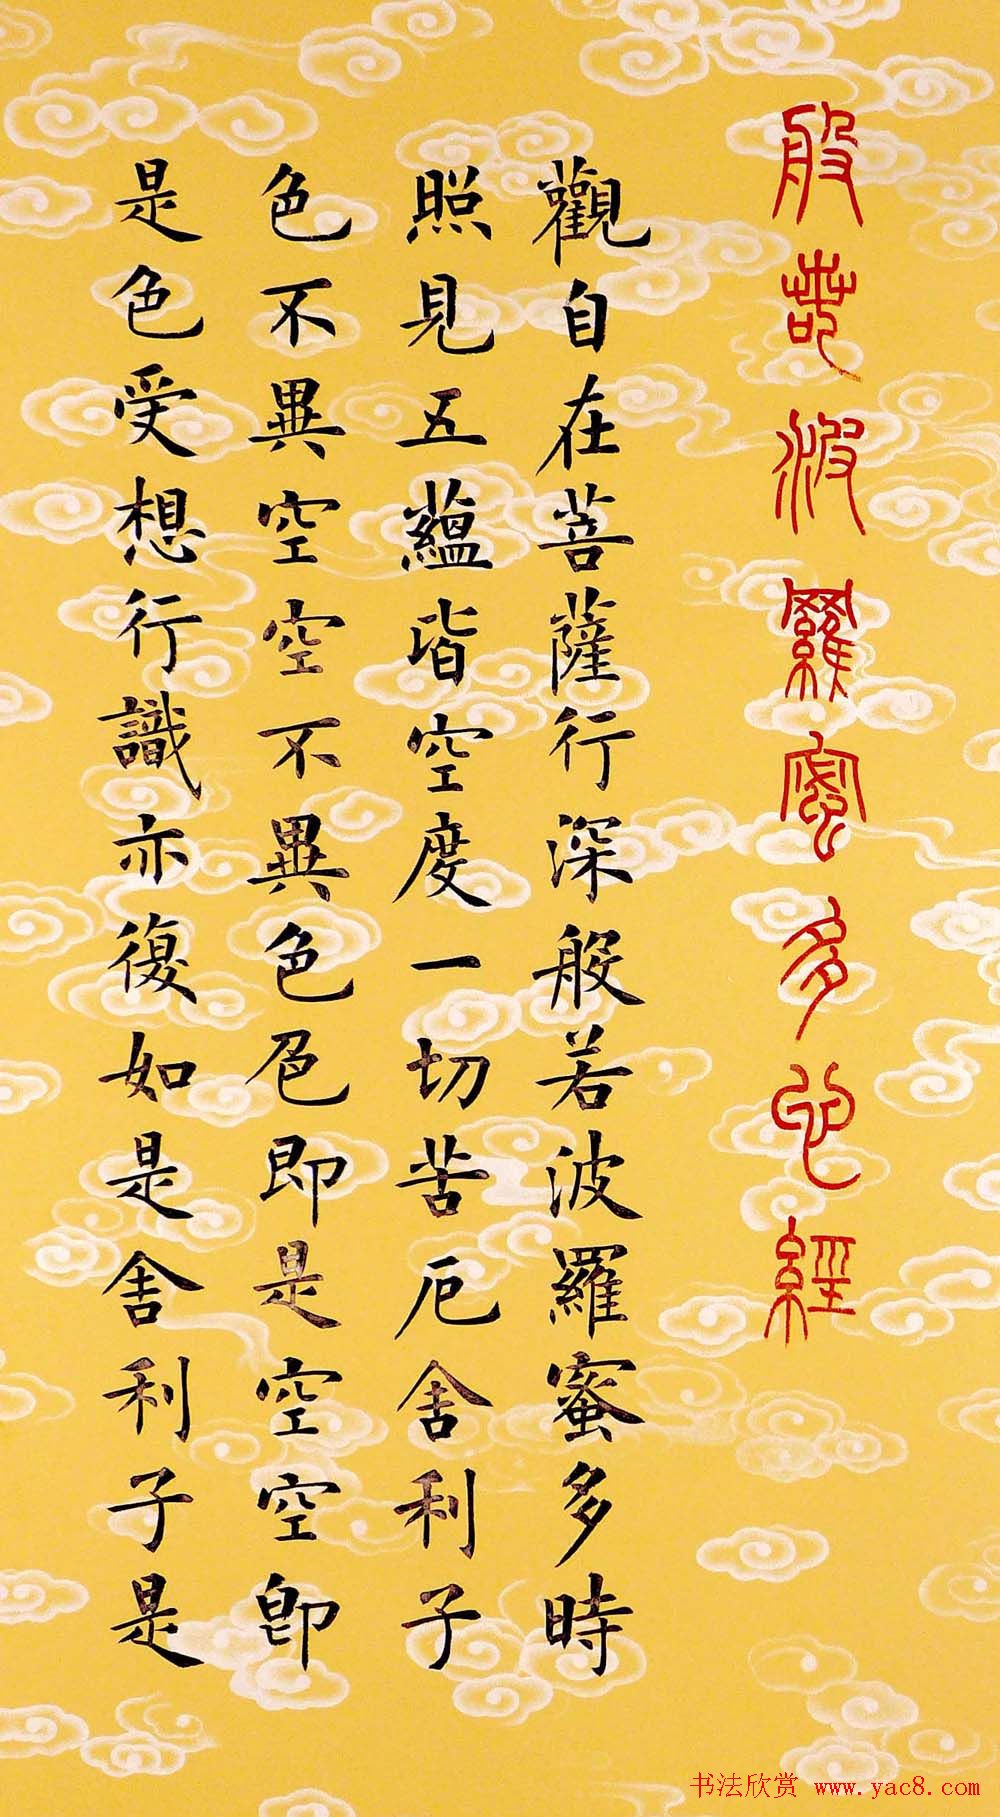 般若波羅蜜多心經
觀自在菩薩行深般若波羅蜜多時
照見五蘊皆空度一切苦厄舍利子
色不異空空不異色色即是空空即
是色受想行識亦復如是舍利子是
书法欣赏 www.yac8.com